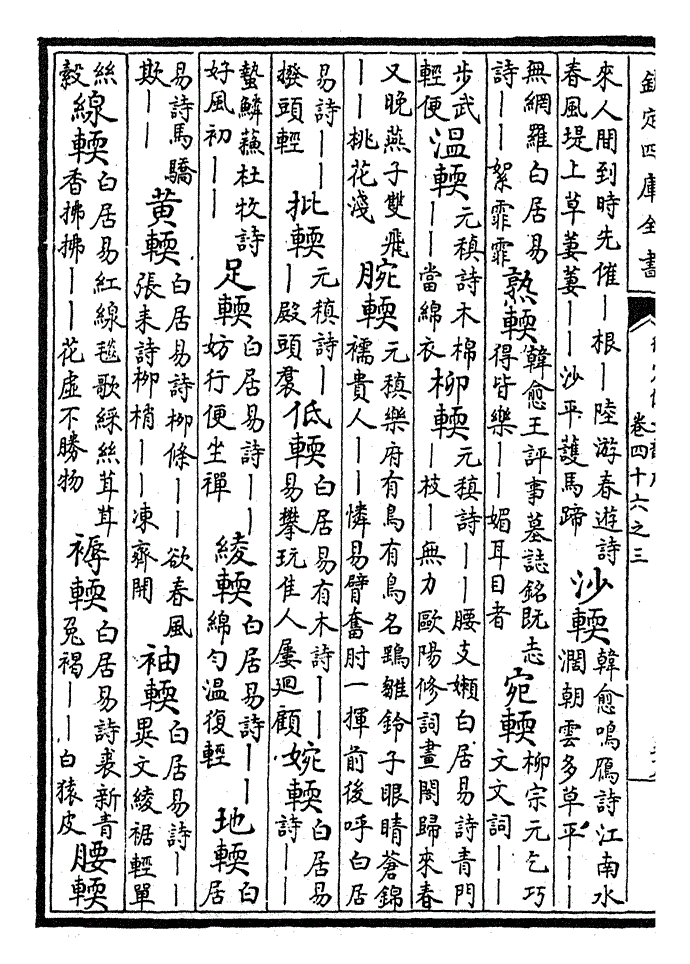 欽定四庫全書
卷四十六之三
來人間到時先催｜根｜陸游春遊詩
春風堤上草萋萋｜｜沙平護馬蹄
沙輭
韓愈鳴鴈詩江南水
濶朝雲多草平｜｜
無網羅白居易
詩｜｜絮霏霏
熟輭
韓愈王評事墓誌銘既志
得皆樂｜｜媚耳目者
宛輭
柳宗元乞巧
文文詞｜｜
步武
輕便
溫輭
元稹詩木棉
｜｜當綿衣
柳輭
元稹詩｜｜腰支嬾白居易詩青門
｜枝｜無力歐陽修詞畫閣歸來春
又晚燕子雙飛
｜｜桃花淺
腕輭
元稹樂府有鳥有鳥名鵶雛鈴子眼睛蒼錦
襦貴人｜｜憐易臂奮肘一揮前後呼白居
易詩｜｜
撥頭輕
批輭
元稹詩｜
｜殿頭裠
低輭
白居易有木詩｜｜
易攀玩佳人屢迴顧
婉輭
白居易
詩｜｜
蟄鱗蘓杜牧詩
好風初｜｜
足輭
白居易詩｜｜
妨行便坐禪
綾輭
白居易詩｜｜
綿勻溫復輕
地輭
白
居
易詩馬驕
欺｜｜
黃輭
白居易詩柳條｜｜欲春風
張耒詩柳梢｜｜凍齊開
袖輭
白居易詩｜｜
異文綾裾輕單
絲
縠
線輭
白居易紅線毯歌綵絲茸茸
香拂拂｜｜花虛不勝物
褥輭
白居易詩裘新青
兔褐｜｜白猿皮
腰輭